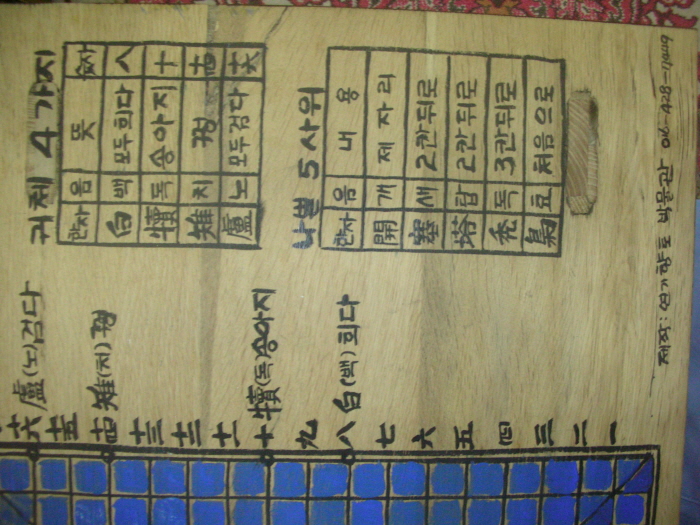 귀체 4가지
한자 음 뜻 숫자
白 백 모두희다 八
犢 독 송아지 十
雉 치 꿩 十四
盧 노 모두검다 十六
나쁠 5 사위
한자 음 내용
開 개 제자리
塞 새 2칸뒤로
塔 탑 2칸뒤로
禿 독 3칸뒤로
梟 효 처음으로
제작: 연기향토 박물관
十六 盧(노)검다
十五
十四 雉(치)꿩
十三
十二
十一
十 犢(독)송아지
九
八 白(백)희다
七
六
五
四
三
二
一